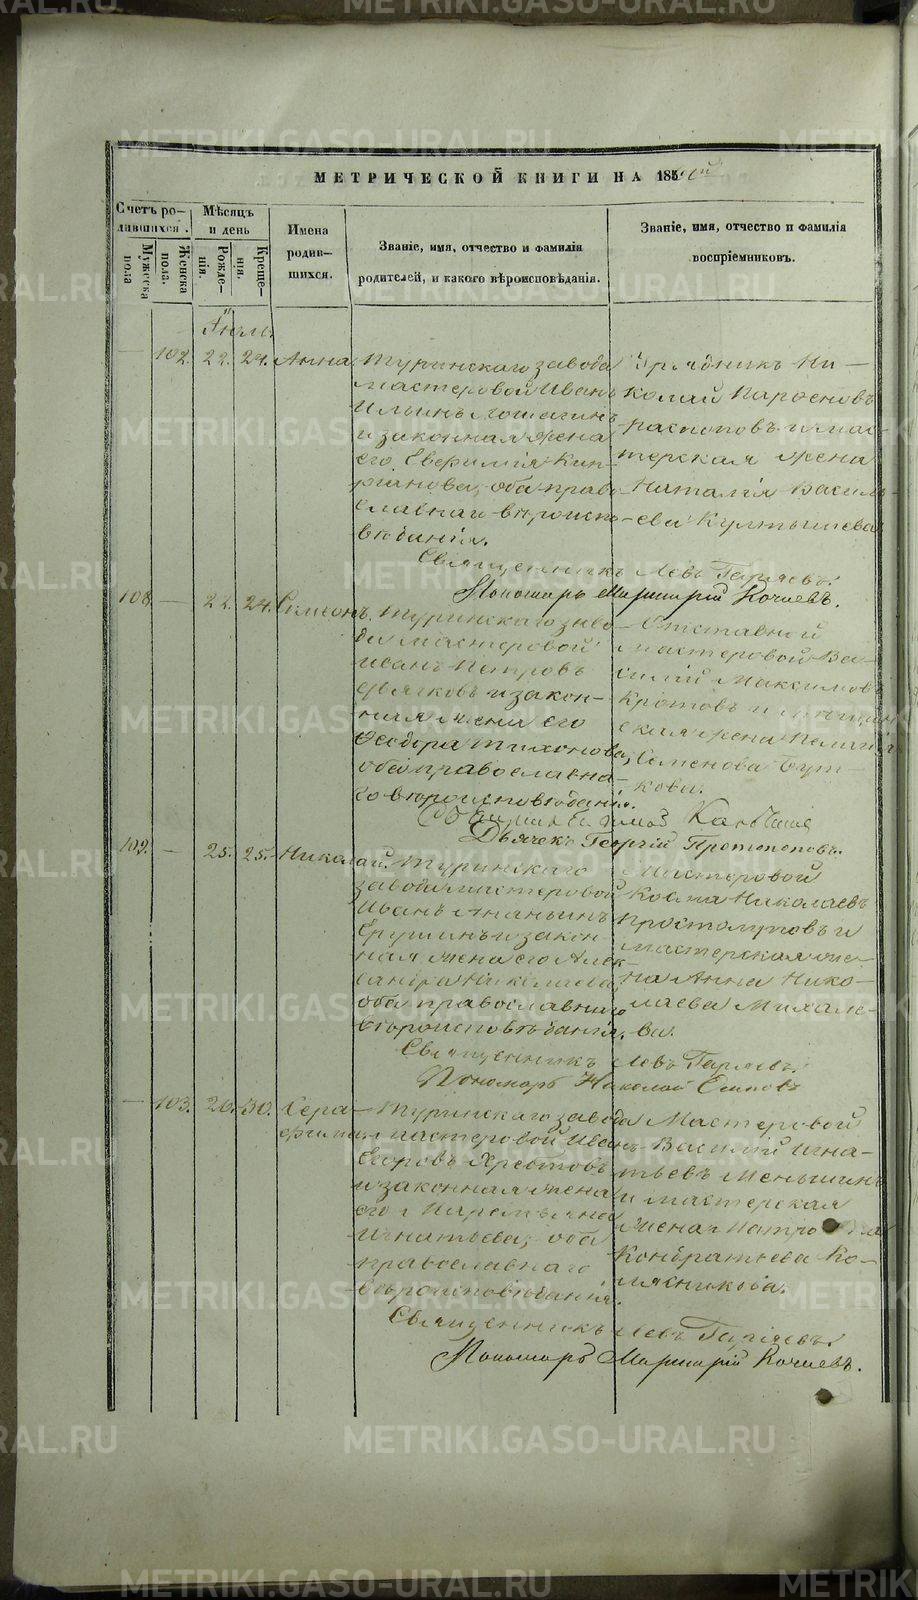 МЕТРИЧЕСКОЙ КНИГИ НА 185
Счетъ ро-
дившихся.
Мужеска
пола
Женска
пола.
Мѣсяцъ
и день
Рожде-
нія.
Креще-
нія.
Имена
родив-
шихся.
Званіе, имя, отчество и фамилія
родителей, и какого вѣроисповѣданія.
Званіе, имя, отчество и фамилія
воспріемниковъ.
102. 22. 24. Анна
Туринскаго завода
мастеровой Иванъ
Ильинъ Лошагинъ
и законная жена
его Евфимія Кип-
ріанова, оба право-
славнаго вѣроиспо-
вѣданія.
Урядникъ Ни-
колай Парѳеновъ
Распоповъ и мас-
терская жена
Наталія Василь-
ева
Священникъ Левъ Гаряевъ.
Пономарь Маркарій Кочневъ.
108. 22. 24. Симеонъ.
Туринскаго заво-
да мастеровой
Иванъ Петровъ
и закон-
ная жена его
Ѳеодора Тихонова,
оба православна-
го вѣроисповѣданія.
Отставной
мастеровой Ва-
силій Максимовъ
Кротовъ и
жена Пелагія
Семенова Бут-
кова.
Дьячекъ Георгій Протопоповъ.
109. 25. 25. Николай.
Туринскаго
завода мастеровой
Иванъ Ананьинъ
и закон-
ная жена его Алек-
сандра Николаева,
оба православнаго
вѣроисповѣданія.
Мастеровой
Косма Николаевъ
Простолуповъ и
мастерская же-
на Анна Нико-
лаева Михале-
ва.
Священникъ Левъ Гаряевъ.
Пономарь Николай Есиповъ
103. 26. 30. Сера-
фима
Туринскаго завода
мастеровой Иванъ
Егоровъ Хрестовъ
и законная жена
его Параскева
Игнатьева, оба
православнаго
вѣроисповѣданія.
Мастеровой
Василій Игна-
тьевъ Меньшинъ
и мастерская
жена
Кондратьева Ко-
лясникова.
Священникъ Левъ Гаряевъ.
Пономарь Маркарій Кочневъ.
METRIKI.GASO-URAL.RU